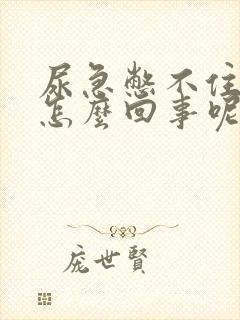 尿急憋不住
怎麼回事呢
庞世賢